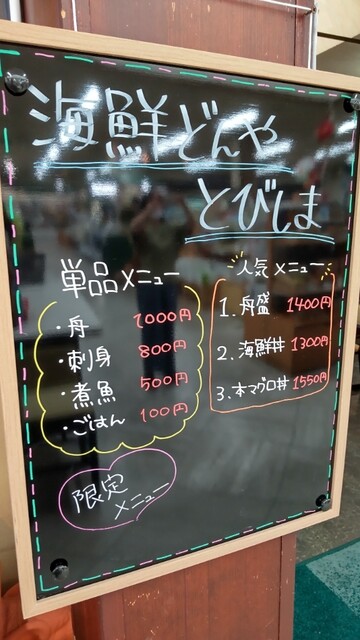 海鮮どんや
とびしま
単品メニュー
・舟 1000円
・刺身 800円
・煮魚 500円
・ごはん 100円
人気メニュー
1. 舟盛 1400円
2. 海鮮丼 1300円
3. 本マグロ丼 1550円
限定
メニュー